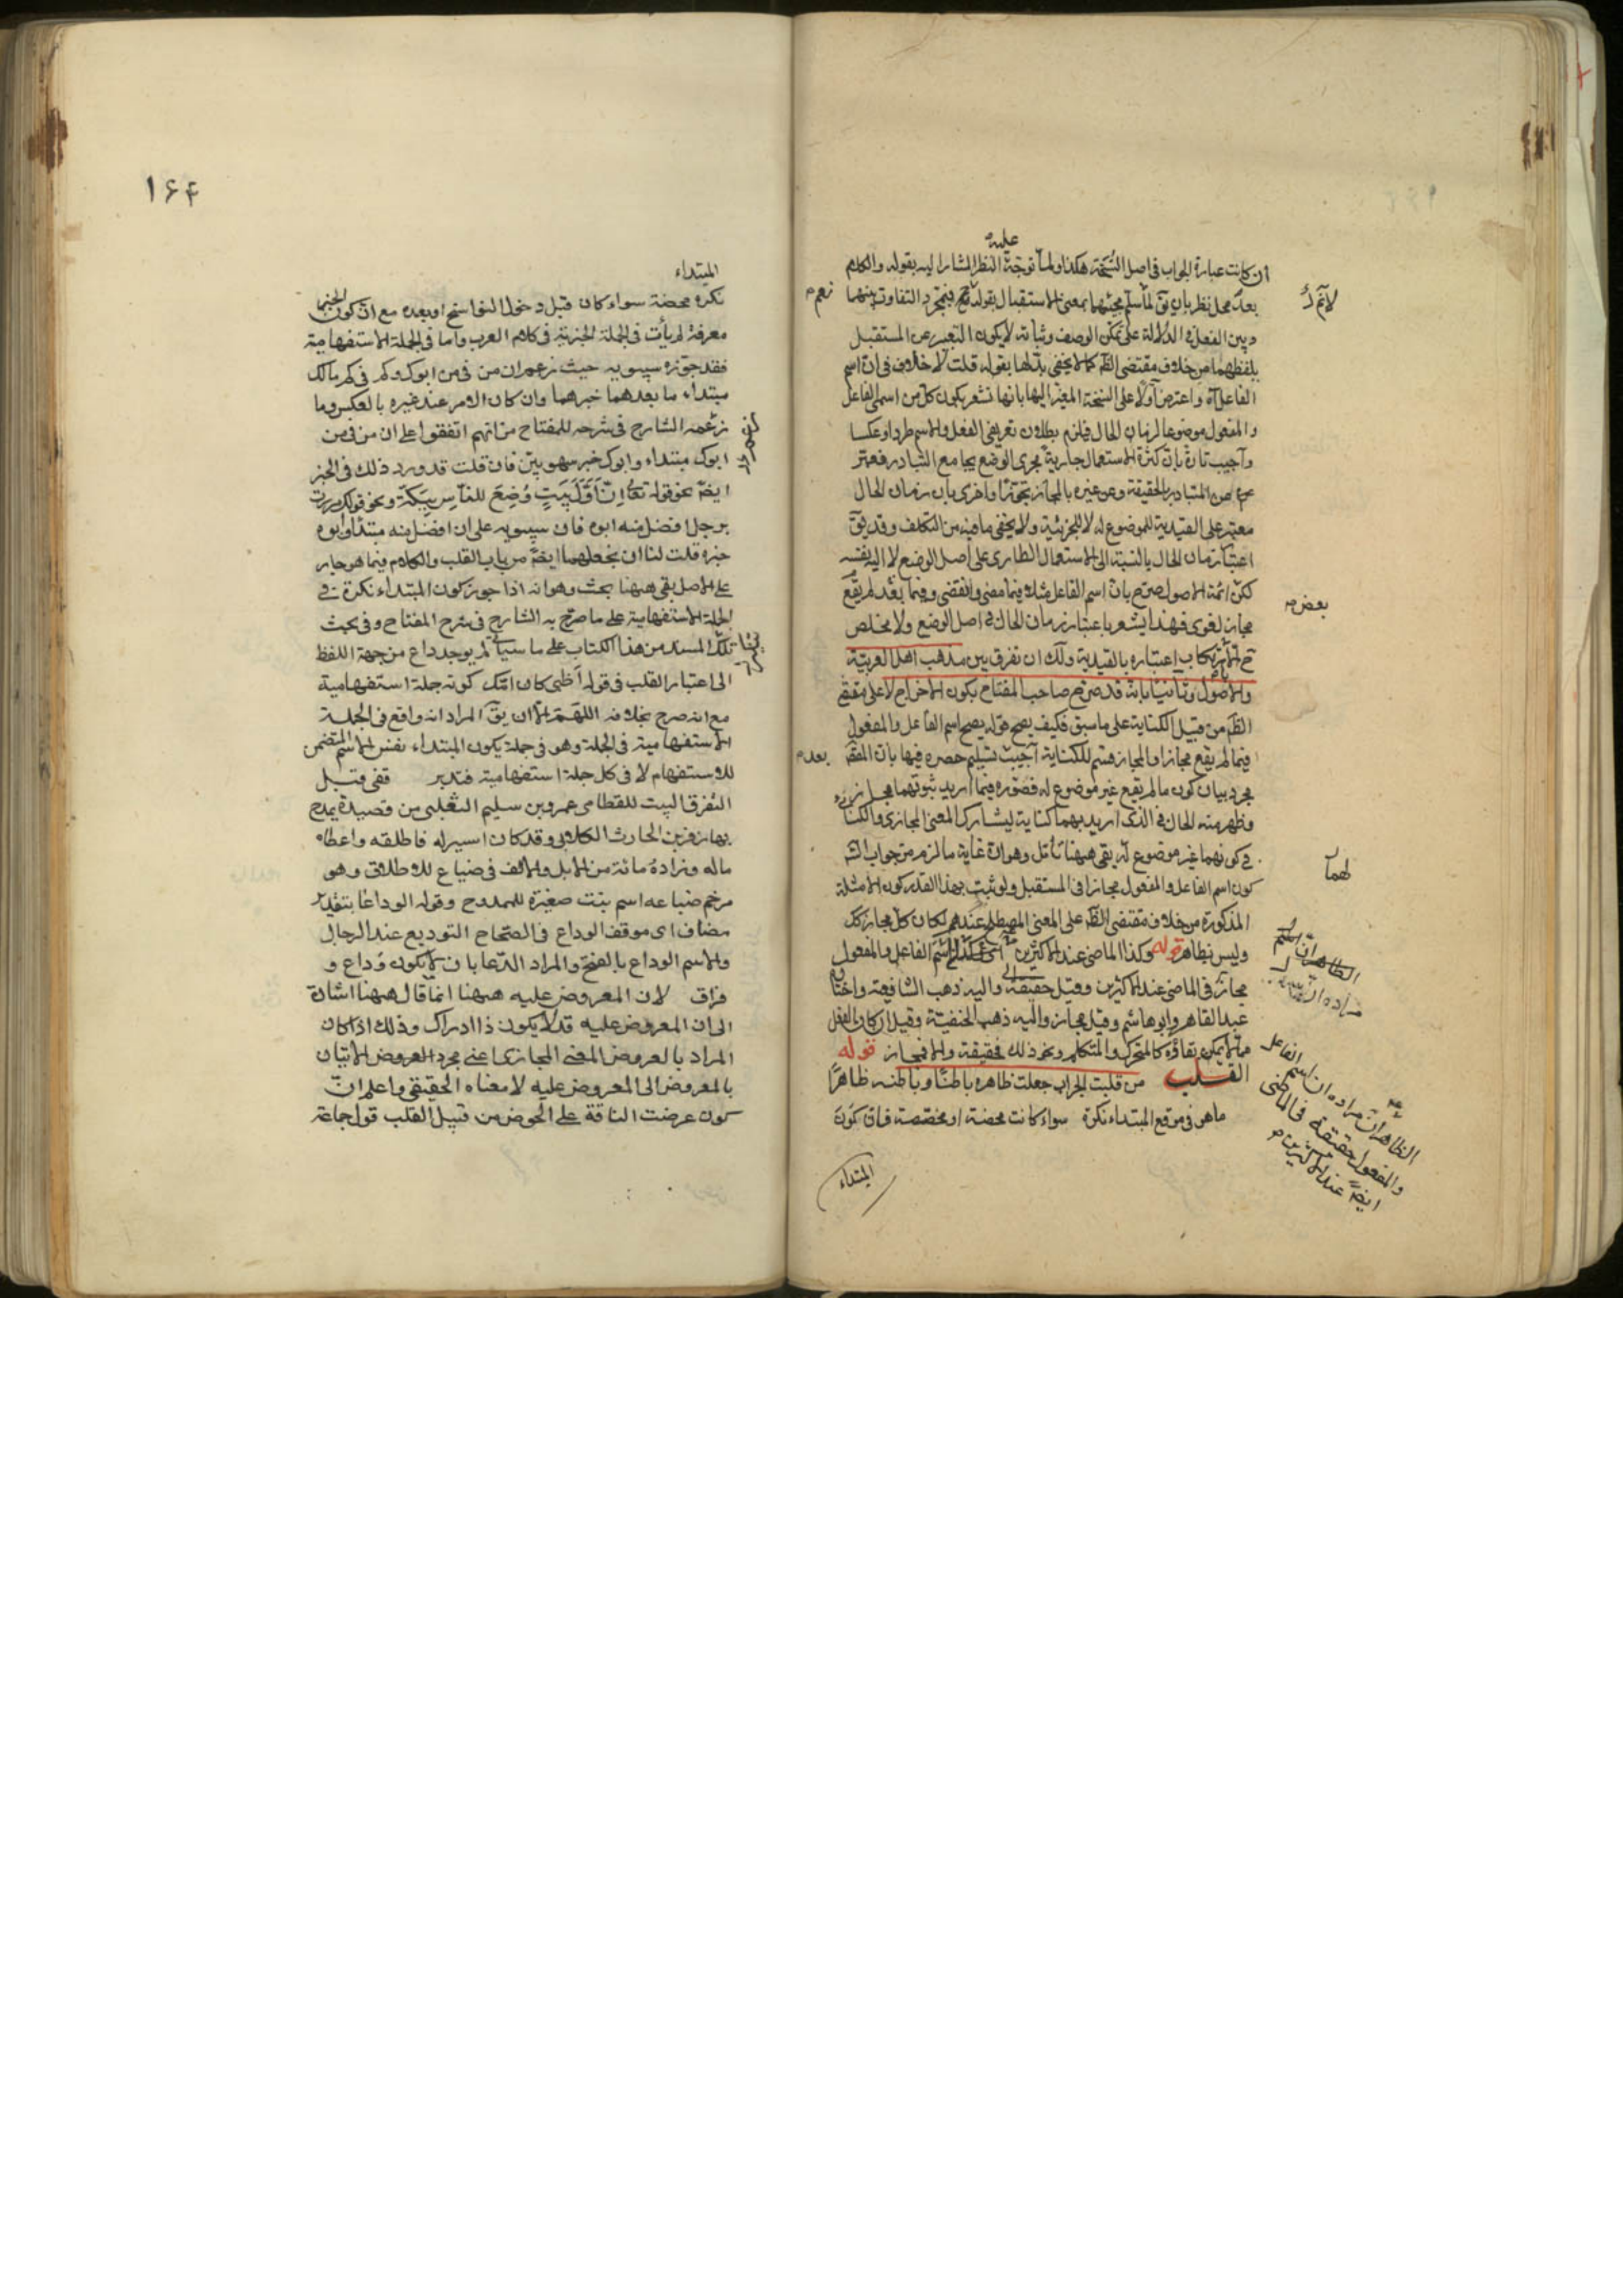 عليه
ان كانت عبارة الجواب فى اصل النسخة هكذا ولما توجه النظر المشار اليه بقوله والكلام
بعد محل نظر بان يق لما سلم مجيئهما بمعنى الاستقبال بقوله نعم فبمجرد التفاوت بينهما
وبين الفعل فى الدلالة على تمكن الوصف وثباته لا يكون التعبير عن المستقبل
بلفظهما من خلاف مقتضى الظم كما لا يخفى بدلها بقوله قلت لا خلاف فى ان اسم
الفاعل آه واعترض اولا على النسخة المغير اليها بانها تشعر بكون كل من اسمى الفاعل
والمفعول موضوعا لزمان الحال فيلزم بطلان تعريفى الفعل والاسم طردا وعكسا
واجيب تارة بان كثرة الاستعمال جارية مجرى الوضع بجامع التبادر فعبر
عن المتبادر بالحقيقة وعن غيره بالمجاز تجوزا واخرى بان زمان الحال
معتبر على القيدية للموضوع له لا للجزئية ولا يخفى ما فيه من التكلف وقد يق
اعتبار زمان الحال بالنسبة الى الاستعمال الطارى على اصل الوضع لا اليه نفسه
لكن ائمة الاصول صرح بان اسم الفاعل مثلا فيما مضى وانقضى وفيما بعد لم يقع
مجاز لغوى فهذا يشعر باعتبار زمان الحال فى اصل الوضع ولا مخلص
ح الا بارتكاب اعتباره بالقيدية ولك ان تفرق بين مذهب اهل العربية
والاصول وثانيا بانه قد صرح صاحب المفتاح بكون الاخراج لا على مقتضى
الظم من قبيل الكناية على ما سبق فكيف يصح قوله يصح اسم الفاعل والمفعول
فيما لم يقع مجازا والمجاز قسيم للكناية اجيب بتسليم حصره فيها بان المقم
مجرد بيان كون ما لم يقع غير موضوع له فصوره فيما اريد ثبوتهما مجازا
وظهر منه الحال فى الذى اريد بهما كناية ليشارك المعنى المجازى والكنائى
فى كونهما غير موضوع له بقى ههنا تأمل وهو ان غاية ما لزم من جواب الشم
كون اسم الفاعل والمفعول مجازا فى المستقبل ولو ثبت بهذا القدر كون الامثلة
المذكورة من خلاف مقتضى الظم على المعنى المصطلح عندهم لكان كل مجاز كك
وليس بظاهر قوله وكذا الماضى عند الاكثرين اى اسم الفاعل والمفعول
مجاز فى الماضى عند الاكثرين وقيل حقيقة واليه ذهب الشافعية واختاره
عبد القاهر وابو هاشم وقيل مجاز واليه ذهب الحنفية وقيل ان كان الفعل
مما لا يمكن بقاؤه كالمتحرك والمتكلم ونحو ذلك فحقيقة والا فمجاز قوله
القلب من قلبت الجراب جعلت ظاهره باطنا وباطنه ظاهرا
ما هو فى موقع المبتداء نكرة سواء كانت محضة او مخصصة فان كون
المبتداء
نعم
بعض
بعده
لهما
الظاهر ان مراده ان اسم الفاعل
والمفعول حقيقة فى الماضى
ايضا عند الاكثرين
١٦٤
المبتداء
نكرة محضة سواء كان قبل دخول النواسخ او بعده مع ان كون الخبر
معرفة لم يأت فى الجملة الخبرية فى كلام العرب واما فى الجملة الاستفهامية
فقد جوزه سيبويه حيث زعم ان من فى من ابوك وكم فى كم مالك
مبتداء ما بعدهما خبرهما وان كان الامر عند غيره بالعكس وما
زعمه الشارح فى شرحه للمفتاح من انهم اتفقوا على ان من فى من
ابوك مبتداء وابوك خبر سهو بين فان قلت قد ورد ذلك فى الخبر
ايضا نحو قوله تعالى اِنَّ اَوَّلَ بَيتٍ وُضِعَ للناسِ بِبَكَّةَ ونحو قولك مررت
برجل افضل منه ابوه فان سيبويه على ان افضل منه مبتداء وابوه
خبره قلت لنا ان نجعلهما ايضا من باب القلب والكلام فيما هو جار
على الاصل بقى ههنا بحث وهو انه اذا جوز كون المبتداء نكرة فى
الجملة الاستفهامية على ما صرح به الشارح فى شرح المفتاح وفى بحث
المسند من هذا الكتاب على ما سياتى لم يوجد داع من جهة اللفظ
الى اعتبار القلب فى قوله أظبى كان امك كونه جملة استفهامية
مع انه صرح بخلافه اللهم الا ان يق المراد انه واقع فى الجملة
الاستفهامية فى الجملة وهو فى جملة يكون المبتداء نفس الاسم المتضمن
للاستفهام لا فى كل جملة استفهامية فتدبر قفى قبل
التفرق البيت للقطامى عمرو بن سليم التغلبى من قصيدة يمدح
بها زفر بن الحارث الكلابى وقد كان اسيرا له فاطلقه واعطاه
ماله وزاده مائة من الابل والالف فى ضباعا للاطلاق وهو
مرخم ضباعه اسم بنت صغيرة للممدوح وقوله الوداعا بتقدير
مضاف اى موقف الوداع فى الصحاح التوديع عند الرحال
والاسم الوداع بالفتح والمراد الدعا بان لا يكون وداع و
فراق لان المعروض عليه ههنا انما قال ههنا اشارة
الى ان المعروض عليه قد لا يكون ذا ادراك وذلك اذا كان
المراد بالعروض المعنى المجازى اعنى مجرد العروض الاتيان
بالمعروض الى المعروض عليه لا معناه الحقيقى واعلم ان
كون عرضت الناقة على الحوض من قبيل القلب قول جماعة